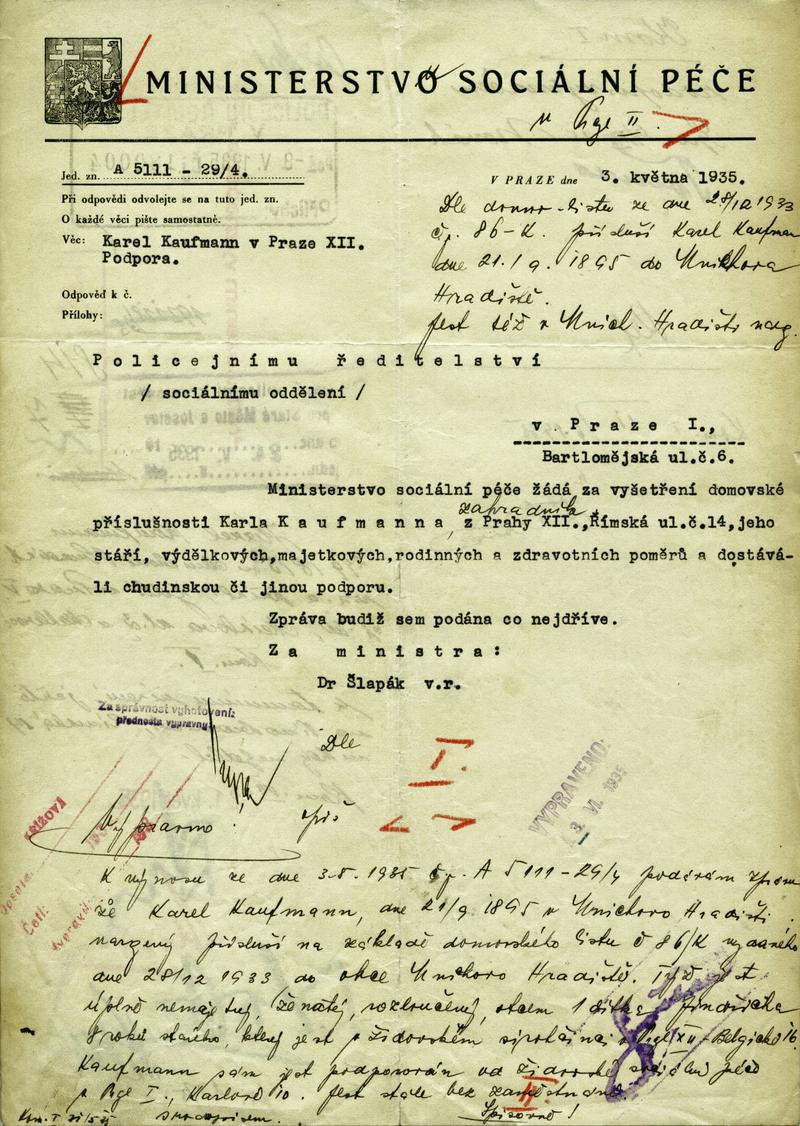 MINISTERSTVO SOCIÁLNÍ PÉČE
v Prze II.
Jed. zn. A 5111 - 29/4.
V PRAZE dne 3. května 1935.
Při odpovědi odvolejte se na tuto jed. zn.
O každé věci pište samostatně.
Věc: Karel Kaufmann v Praze XII.
Podpora.
Odpověď k č.
Přílohy:
Dle domov. listu ze dne 28/12 1933
čj. 86-K. přísluší Karel Kaufman
dne 21./9. 1895 do Mnichova
Hradiště.
Jest též v Mnich. Hradišti narz.
Policejnímu ředitelství
/ sociálnímu oddělení /
v Praze I.,
Bartlomějská ul.č.6.
Ministerstvo sociální péče žádá za vyšetření domovské
zahradníka
příslušnosti Karla Kaufmanna, z Prahy XII.,Římská ul.č.14,jeho
stáří, výdělkových,majetkových,rodinných a zdravotních poměrů a dostává-
li chudinskou či jinou podporu.
Zpráva budiž sem podána co nejdříve.
Za ministra:
Dr Šlapák v.r.
Za správnost vyhotovení:
přednosta výpravny:
Dle
I.
VYPRAVENO:
3. VI. 1935
KŘÍŽOVÁ
Četl:
Vypraveno!
opis
K výnosu ze dne 3.5. 1935 čj. A 5111-29/4 podávám zprávu
že Karel Kaufmann, dne 21/9. 1895 v Mnichovo Hradišti
narzený přísluší na základě domovského listu č 86/K vydaného
dne 28/12 1933 do obce Mnichovo Hradiště. Týž jest
úplně nemajetný, ženatý, rozloučený, otcem 1 dítka Jindřicha
8 roků starého, který jest v židovském sirotčinci v Prze XII - Belgická 16.
Kaufmann sám jest podporován od židovské sociální péče
v Prze I., Karlova 10. Jest stále bez zaměstnání.
II.